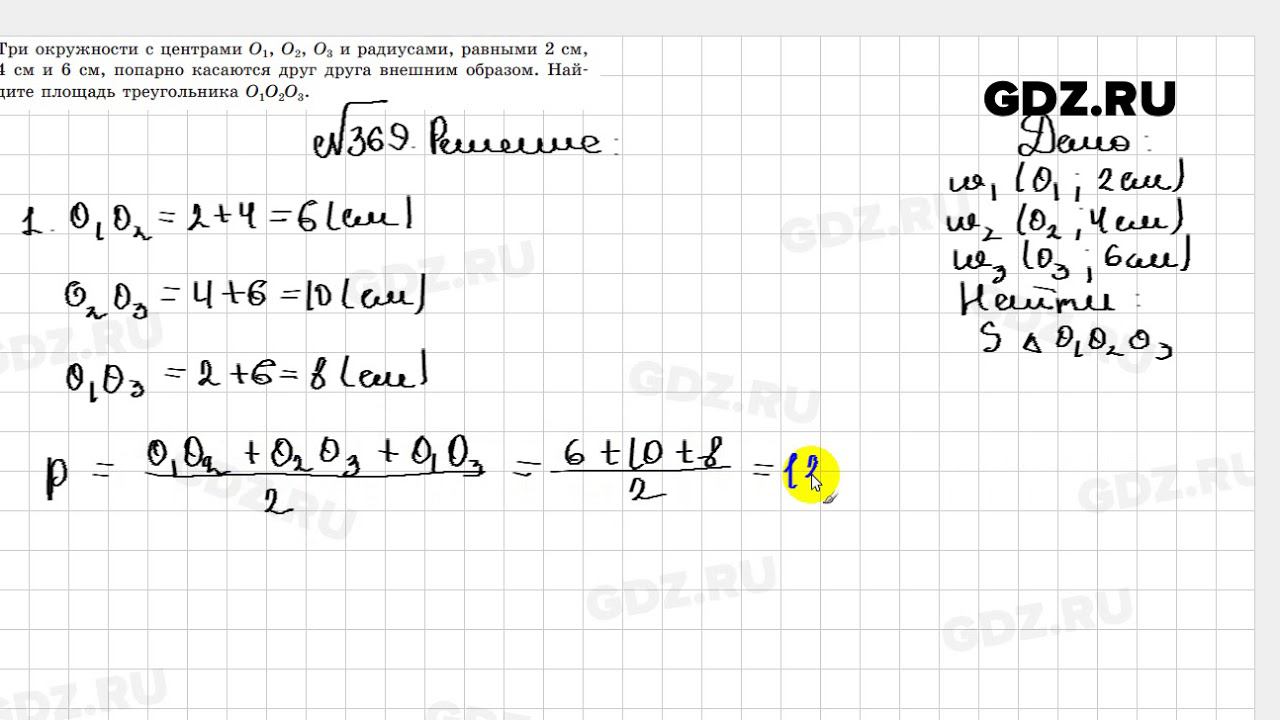 Три окружности с центрами O₁, O₂, O₃ и радиусами, равными 2 см,
4 см и 6 см, попарно касаются друг друга внешним образом. Най-
дите площадь треугольника O₁O₂O₃.
GDZ.RU
№369. Решение:
Дано:
w₁ (O₁; 2см)
w₂ (O₂; 4см)
w₃ (O₃; 6см)
Найти:
S △ O₁O₂O₃
1. O₁O₂ = 2+4 = 6 (см)
O₂O₃ = 4+6 = 10 (см)
O₁O₃ = 2+6 = 8 (см)
p = (O₁O₂ + O₂O₃ + O₁O₃)/2 = (6+10+8)/2 = 12
GDZ.RU
GDZ.RU
GDZ.RU
GDZ.RU
GDZ.RU
GDZ.RU
GDZ.RU
GDZ.RU
GDZ.RU
GDZ.RU
GDZ.RU